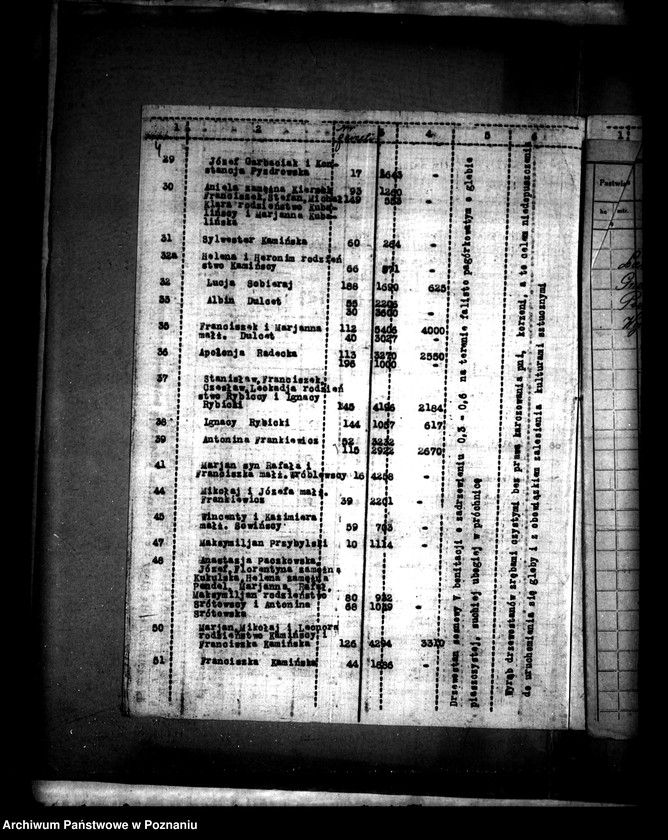 1 2 3 4 5 6
4
29 Józef Garbaciak i Kon-
stancja Pyzdrowska 17 1643 -
30 Aniela zamężna Kiernak 93 1260 -
Franciszek, Stefan, Michał 149 553
Klara rodzieństwo Kuba-
lińscy i Marjanna Kuba-
lińska
31 Sylwester Kamińska 60 264 -
32a Helena i Heronim rodzień
stwo Kamińscy 66 871 -
32 Łucja Sobieraj 188 1690 625
33 Albin Dulcet 55 2205 -
30 3600
35 Franciszek i Marjanna 112 5406 4000
małż. Dulcet 40 3027
36 Apolonja Radecka 113 3270 2550
196 1000
37 Stanisław, Franciszek,
Czesław, Leokadja rodzień
stwo Rybiccy i Ignacy
Rybicki 145 4196 2184
38 Ignacy Rybicki 144 1057 617
39 Antonina Frankiewicz 52 3232
115 2922 2670
41 Marjan syn Rafała i
Franciszka małż. Wróblewscy 16 4258 -
44 Mikołaj i Józefa małż.
Frankiewicz 39 2201 -
45 Wincenty i Kazimiera
małż. Sowińscy 59 703 -
47 Maksymiljan Przybylski 10 1114 -
48 Anastazja Paczkowska,
Józef, Florentyna zamężna
Kukulska, Helena zamężna
Marjanna, Rafał,
Maksymiljan rodzieństwo 80 932 -
Srótowscy i Antonina 68 1039
Srótowska
50 Marjan, Mikołaj i Leonora
rodzieństwo Kamińscy i
Franciszka Kamińska 126 4294 3310
51 Franciszka Kamińska 44 1886 -
Drzewostan sosnowy V bonitacji o zadrzewieniu 0,3 - 0,6 na terenie falisto pagórkowatym o glebie
piaszczystej, suchej ubogiej w próchnicę
Wyrąb drzewostanów zrębami czystymi bez prawa karczowania pni, korzeni, a to celem niedopuszczenia
do uruchomienia się gleby i z obowiązkiem zalesienia kulturami sztucznymi
11
Pastwis
ha
Archiwum Państwowe w Poznaniu